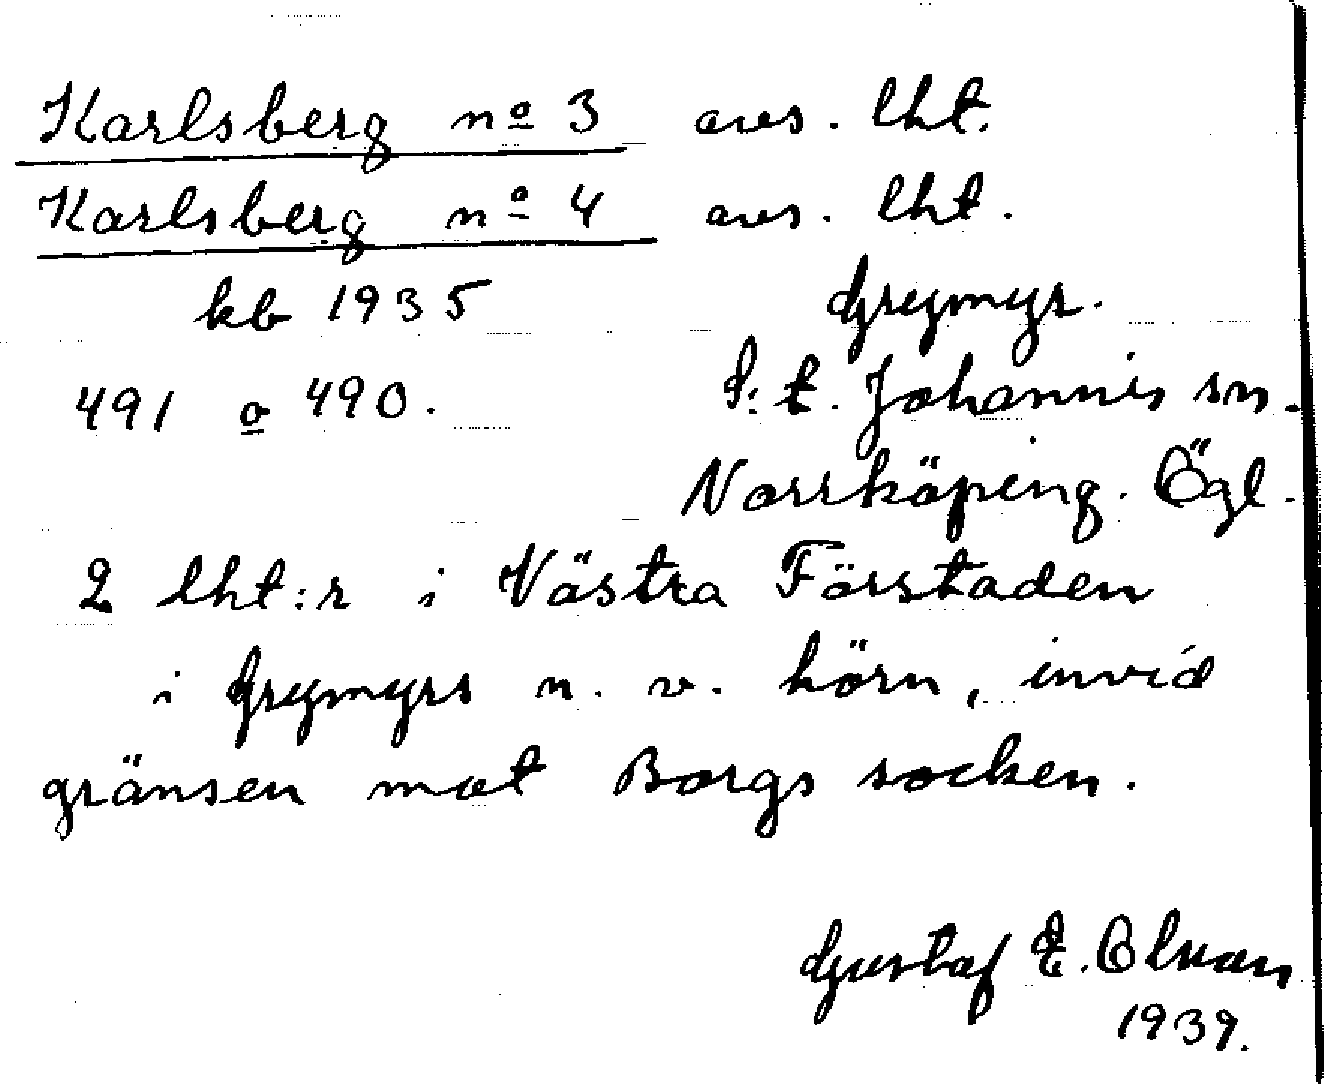 Karlsberg nº 3 avs. lht.
Karlsberg nº 4 avs. lht.
kb 1935 Grymyr.
491 o 490. S:t. Johannis sn.
Norrköping. Ögl.
2 lht:r i Västra Förstaden
i Grymyrs n. v. hörn, invid
gränsen mot Borgs socken.
Gustaf E.
1939.